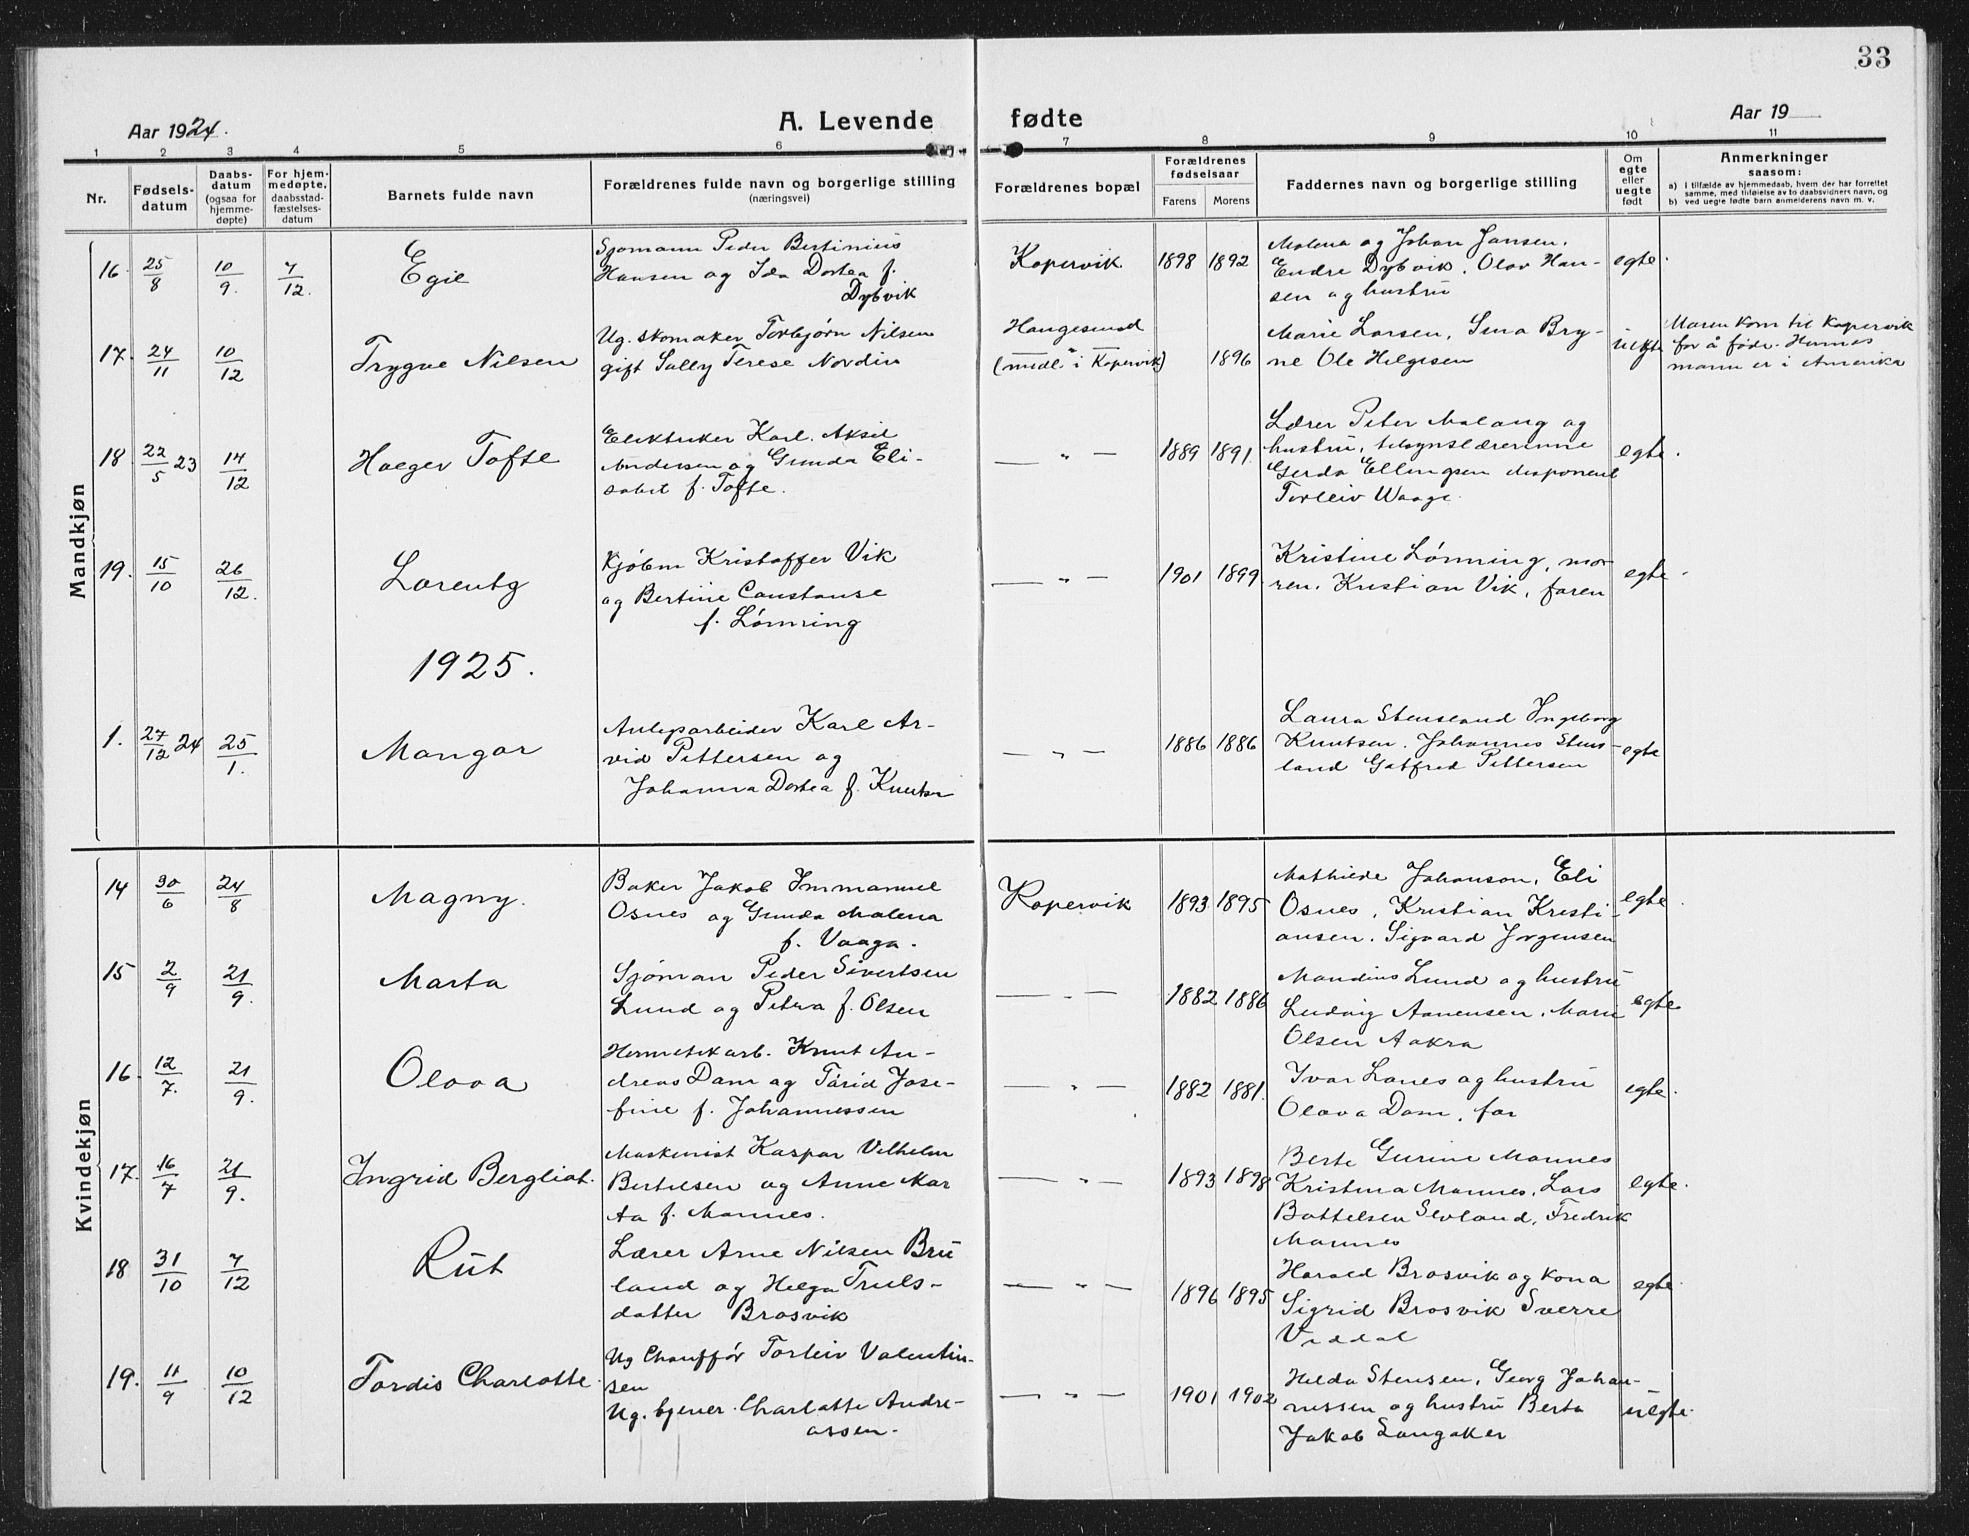 33
Aar 1924.
A. Levende fødte
Aar 19
1 2 3 4 5 6 7 8 9 10 11
Nr.
Fødselsdatum
Daabsdatum (ogsaa for hjemmedøpte)
For hjemmedøpte, daabsstadfæstelsesdatum
Barnets fulde navn
Forældrenes fulde navn og borgerlige stilling
(næringsvei)
Forældrenes bopæl
Forældrenes fødselsaar
Farens Morens
Faddernes navn og borgerlige stilling
Om egte eller uegte født
Anmerkninger saasom:
a) i tilfælde av hjemmedaab, hvem der har forrettet samme, med tilføielse av to daabsvidners navn, og
b) ved uegte fødte barn anmelderens navn m. v.
Mandkjøn
16 25/8 10/9. 7/12. Egil
Sjømann Peder Bertinius
Hansen og Ida Dortea f.
Dybvik
Kopervik 1898 1892
Malena og Johan Jansen.
Endre Dybvik. Olav Han-
sen og hustru
egte.
17. 24/11 10/12 Trygve Nilsen
Ug. skomaker Torbjørn Nilsen
gift Sally Terese Nordin
Haugesund
(midl. i Kopervik)
1896
Marie Larsen, Sina Bry-
ne Ole Helgesen
uegte
Moren kom til Kopervik
for å føde. Hennes
mann er i Amerika
18 22/5 23 14/12 Holger Tofte
Elektriker Karl Aksel
Andersen og Gunda Eli-
sabet f. Tofte.
— " — 1889 1891.
Lærer Peter Malang og
hustru, tilsynslærerinne
Gerda Ellingsen disponent
Torleiv Waage.
egte.
19. 15/10 26/12. Lorentz
Kjøbm Kristoffer Vik
og Bertine Constanse
f. Lønning
— " — 1901 1899
Kristine Lønning, mo-
ren. Kristian Vik, faren
egte.
1925.
1. 27/12 24 25/1. Mangor
Anlegsarbeider Karl Ar-
vid Pettersen og
Johanna Dortea f. Knutsen
— " — 1886 1886
Laura Stensland Ingeborg
Knutsen. Johannes Stens-
land Gotfred Pettersen
egte
Kvindekjøn
14 30/6 24/8 Magny.
Baker Jakob Immanuel
Osnes og Gunda Malena
f. Vaaga.
Kopervik 1893 1895
Mathilde Johanson, Eli
Osnes, Kristian Kristi-
ansen. Sigvard Jørgensen
egte.
15 2/9 21/9. Marta
Sjøman Peder Sivertsen
Lund og Petra f. Olsen
— " — 1882 1886
Mandius Lund og hustru
Ludvig Aanensen, Marie
Olsen Aakra
egte
16. 12/7. 21/9. Olava
Hermetikarb. Knut An-
dreas Dam og Tarid Jose-
fine f. Johannessen
— " — 1882 1881.
Ivar Lanes og hustru
Olava Dam, far
egte.
17. 16/7 21/9. Ingrid Bergliot.
Maskinist Kaspar Vilhelm
Bertelsen og Anne Mar
ta f. Mannes.
— " — 1893 1898
Berte Gurine Mannes
Kristina Mannes, Lars
Bottelsen Sevland, Fredrik
Mannes
egte.
18 31/10 7/12 Rut
Lærer Arne Nilsen Bru
land og Helga Truls-
datter Brosvik
— " — 1896 1895
Harald Brosvik og kona
Sigrid Brosvik Sverre
Viddal
egte.
19. 11/9 10/12 Tordis Charlotte.
Ug Chauffør Torleiv Valentin-
sen
Ug. tjener. Charlotte Andre-
assen.
— " — 1901 1902
Helda Stensen, Georg Johan-
nessen og hustru Berta
Jakob Langaker
uegte.